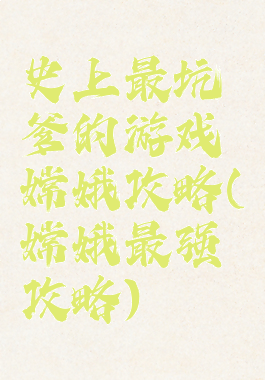 史上最坑
爹的游戏
嫦娥攻略(
嫦娥最强
攻略)